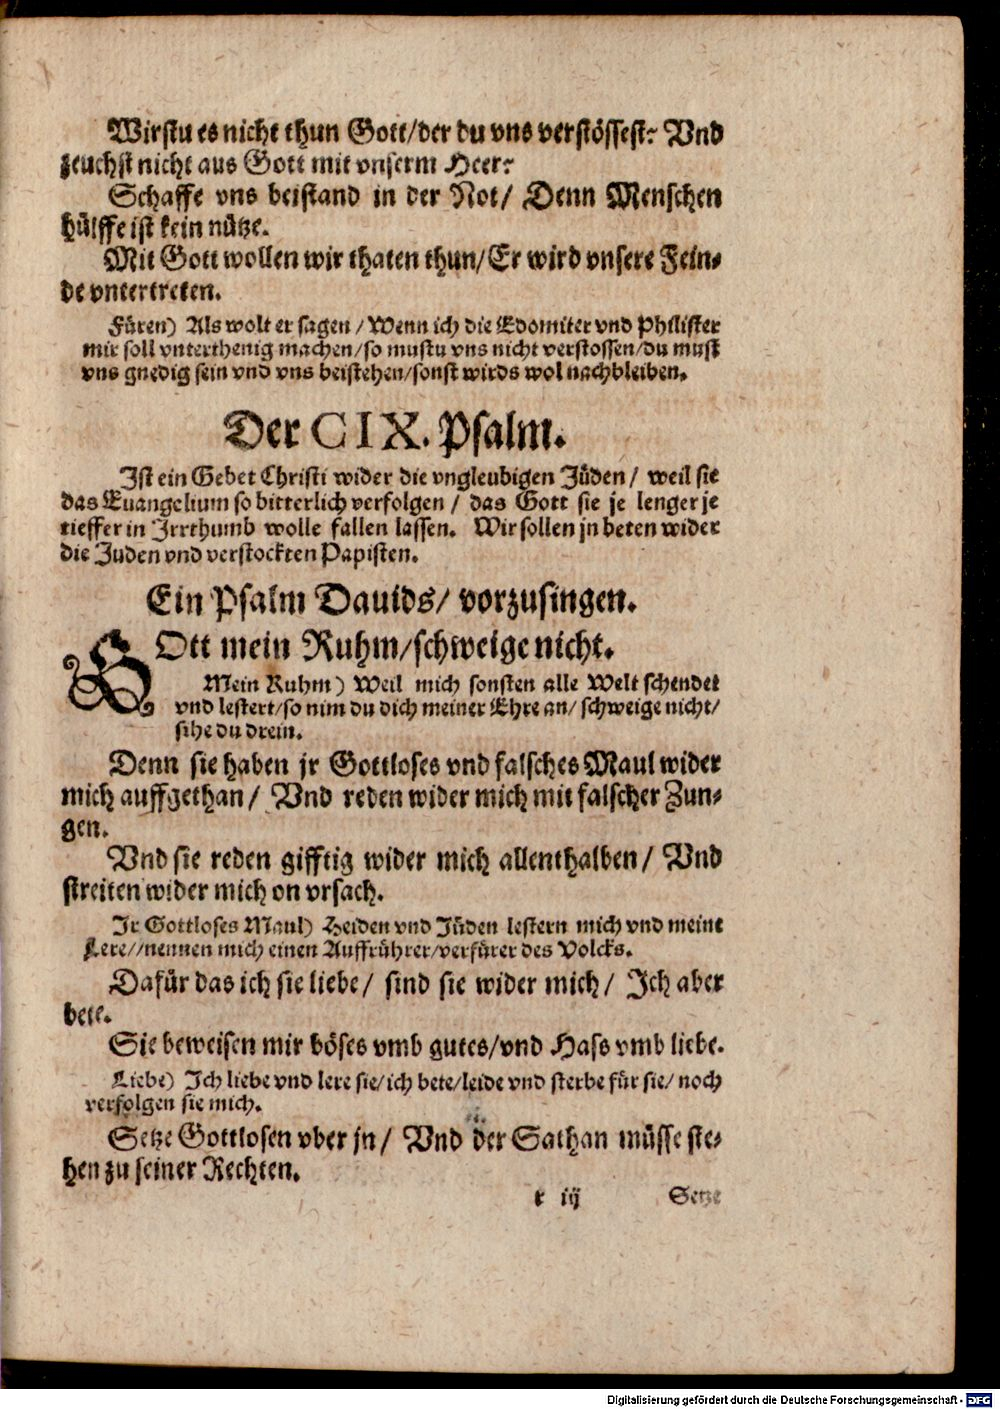 Wirstu es nicht thun Gott/der du vns verstössest? Vnd
zeuchst nicht aus Gott mit vnserm Heer?
Schaffe vns beistand in der Not/ Denn Menschen
hülffe ist kein nütze.
Mit Gott wollen wir thaten thun/Er wird vnsere Fein-
de vntertreten.
Füren) Als wolt er sagen/Wenn ich die Edomiter vnd Philister
mir soll vnterthenig machen/so mustu vns nicht verstossen/du must
vns gnedig sein vnd vns beistehen/sonst wirds wol nachbleiben.
Der CIX. Psalm.
Ist ein Gebet Christi wider die vngleubigen Jüden/ weil sie
das Euangelium so bitterlich verfolgen/ das Gott sie je lenger je
tieffer in Irrthumb wolle fallen lassen. Wir sollen jn beten wider
die Juden vnd verstockten Papisten.
Ein Psalm Dauids/ vorzusingen.
GOtt mein Ruhm/schweige nicht.
Mein Ruhm) Weil mich sonsten alle Welt schendet
vnd lestert/so nim du dich meiner Ehre an/ schweige nicht/
sihe du drein.
Denn sie haben jr Gottloses vnd falsches Maul wider
mich auffgethan/ Vnd reden wider mich mit falscher Zun-
gen.
Vnd sie reden gifftig wider mich allenthalben/ Vnd
streiten wider mich on vrsach.
Ir Gottloses Maul) Heiden vnd Jüden lestern mich vnd meine
Lere//nennen mich einen Auffrührer/verfürer des Volcks.
Dafür das ich sie liebe/ sind sie wider mich/ Ich aber
bete.
Sie beweisen mir böses vmb gutes/vnd Hass vmb liebe.
Liebe) Ich liebe vnd lere sie/ich bete/leide vnd sterbe für sie/noch
verfolgen sie mich.
Setze Gottlosen vber jn/ Vnd der Sathan müsse ste-
hen zu seiner Rechten.
r iij Setze
Digitalisierung gefördert durch die Deutsche Forschungsgemeinschaft - DFG